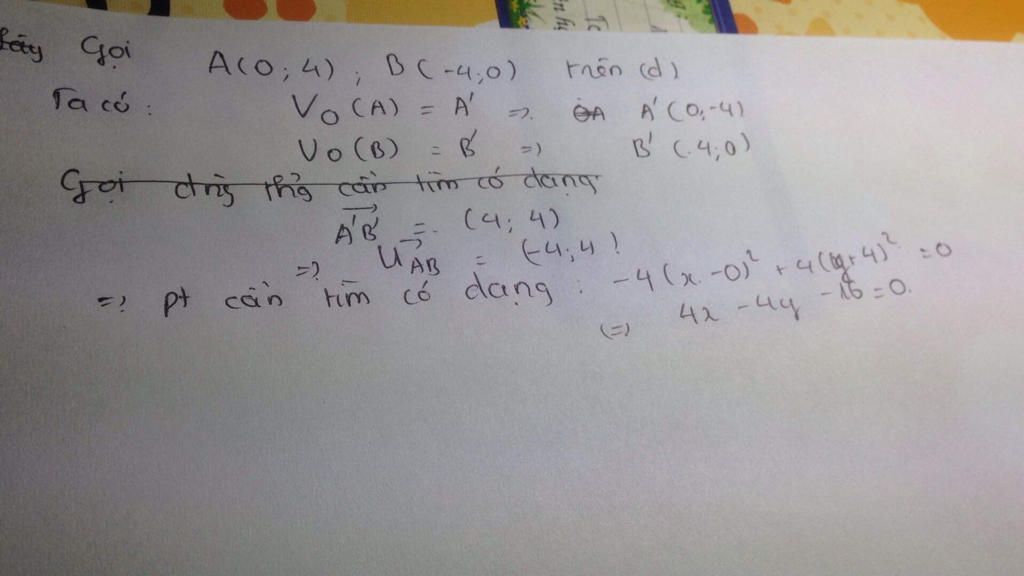 Lấy Gọi A(0;4) , B(-4;0) trên (d)
Ta có: Vo(A) = A' => A'(0;-4)
Vo(B) = B' => B'(4;0)
Gọi đtrg thẳg cần tìm có dạng
A'B' = (4;4)
=> U AB = (-4;4)
=> pt cần tìm có dạng : -4(x-0)² + 4(y+4)² = 0
(=) 4x - 4y - 16 = 0.